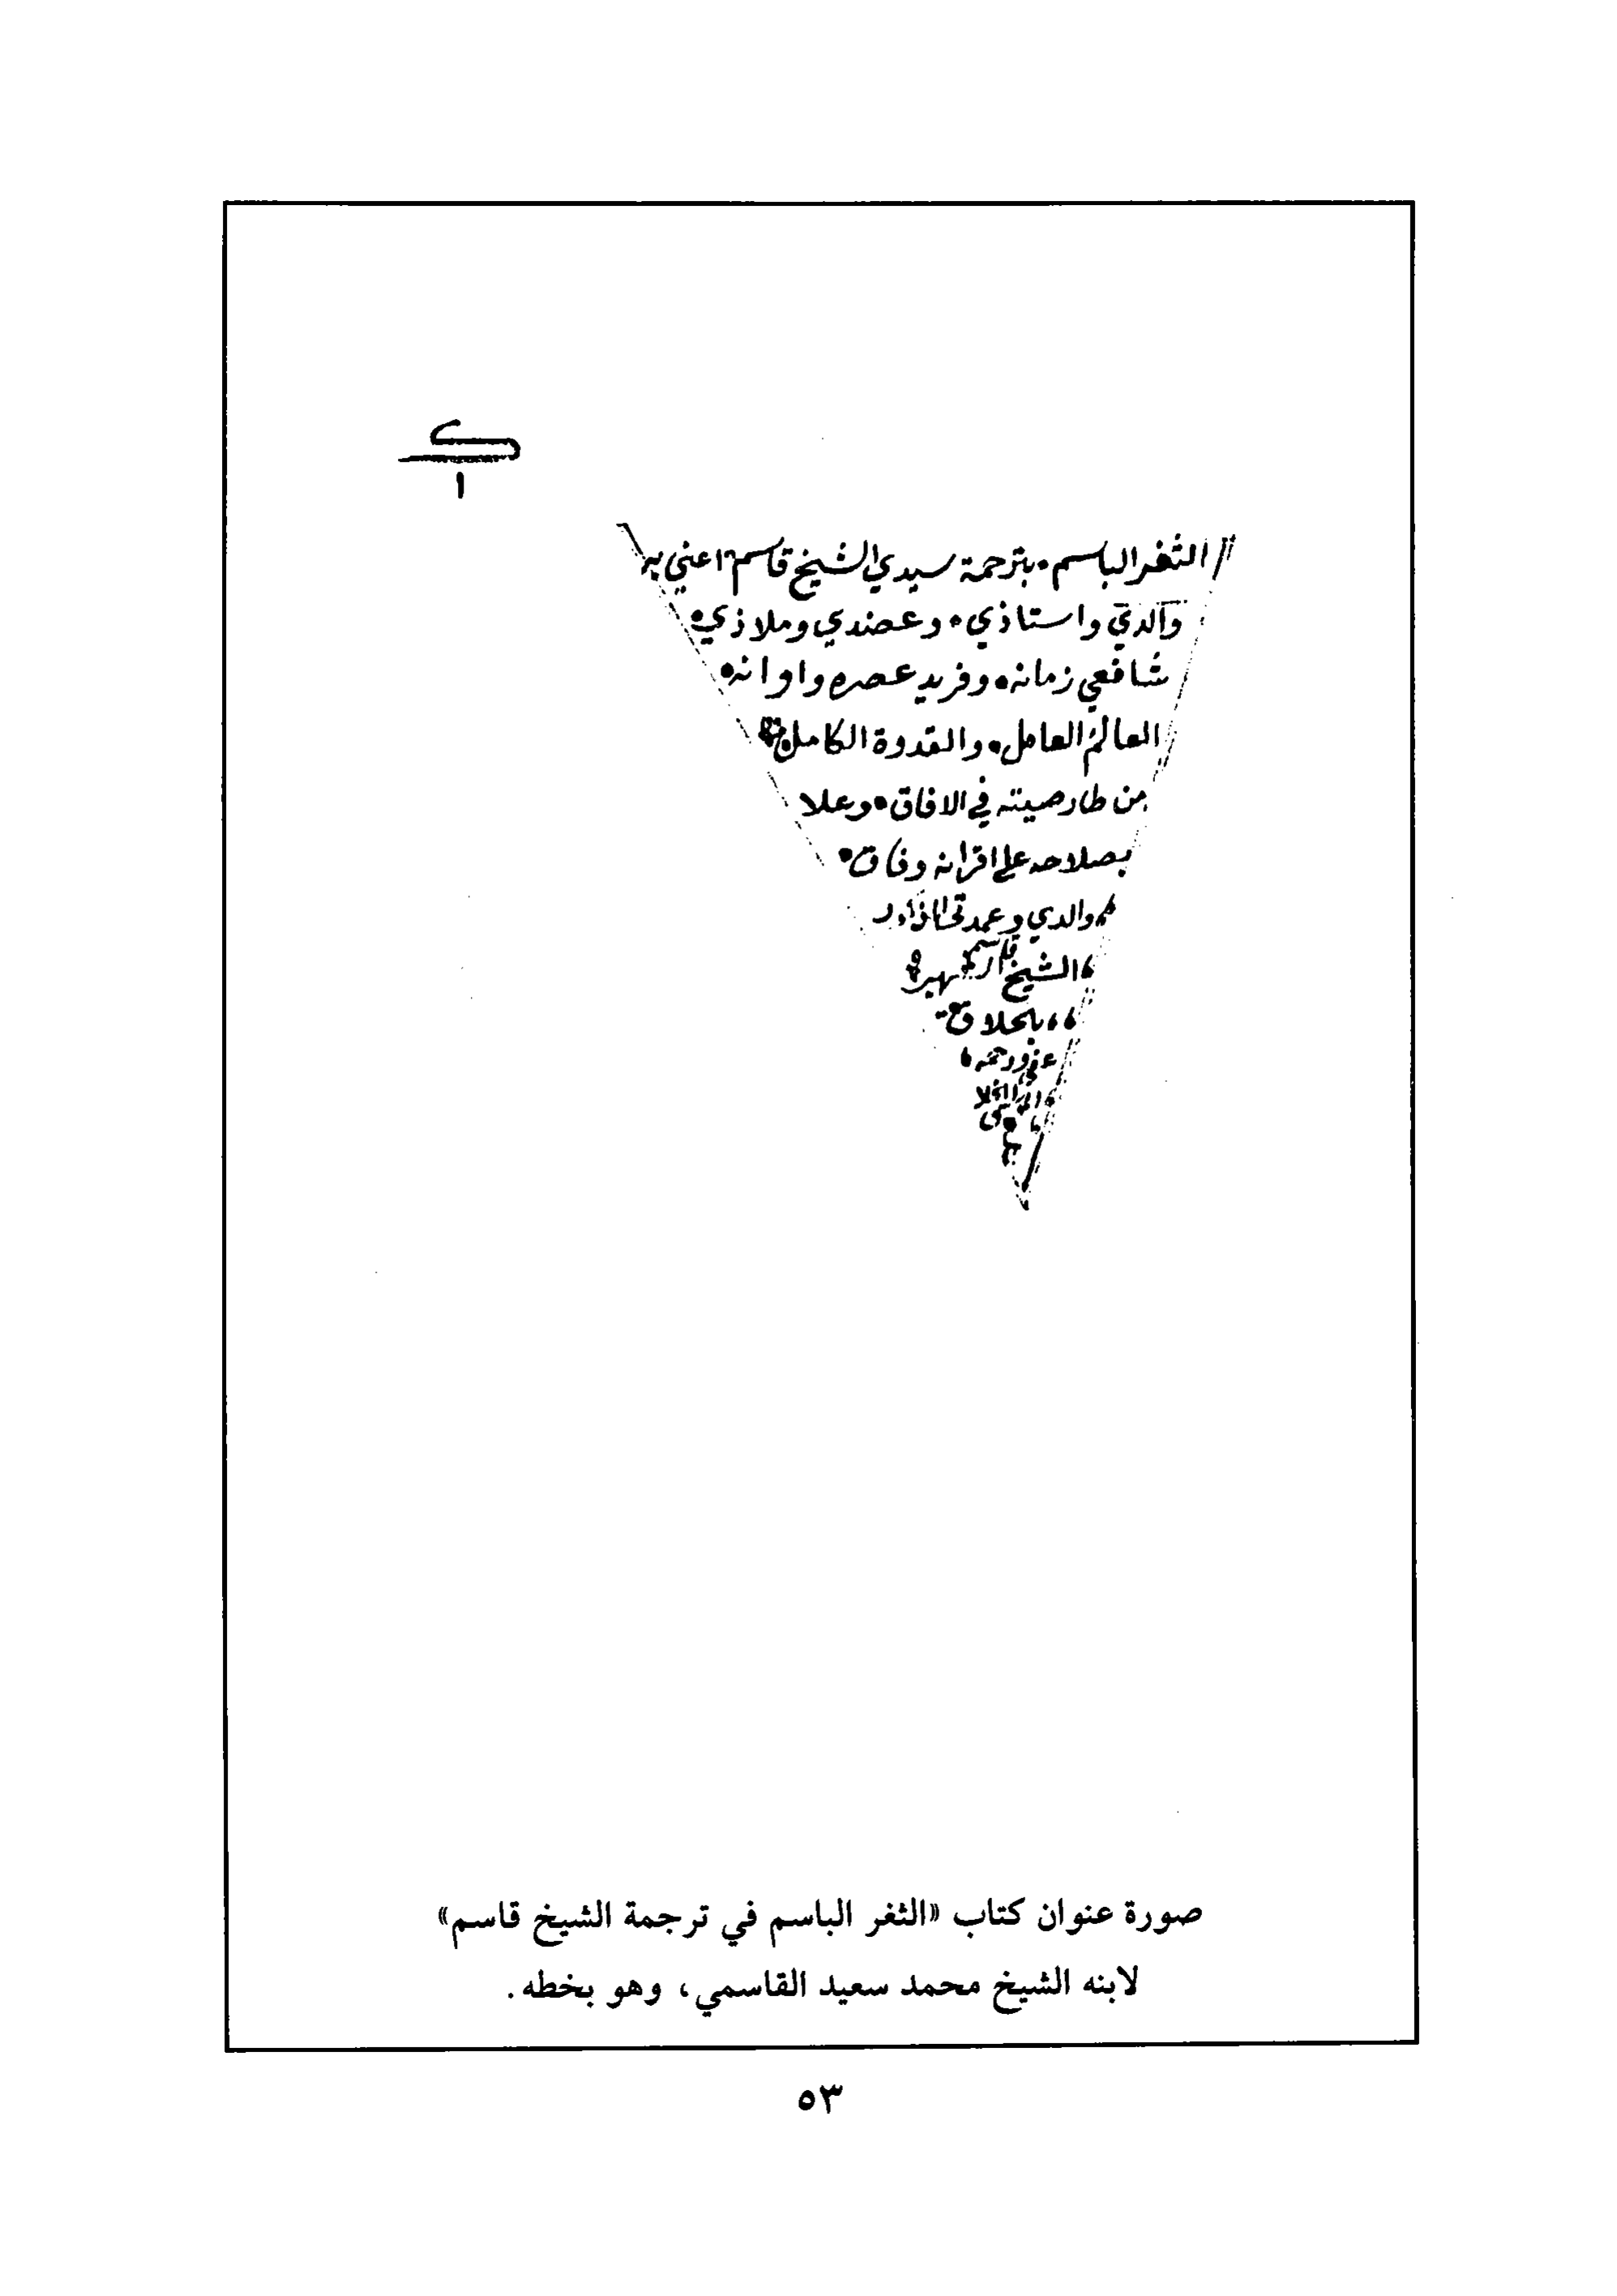 ١
الثغر الباسم • بترجمة سيدي الشيخ قاسم اعني به
والدي واستاذي • وعضدي وملاذي •
شافعي زمانه • وفريد عصره واوانه •
العالم العامل • والقدوة الكامل •
من طار صيته في الافاق • وعلا
بصلاحه على اقرانه وفاق •
والدي وعمدتي
الشيخ قاسم الشهير
بالحلاق
صورة عنوان كتاب «الثغر الباسم في ترجمة الشيخ قاسم»
لابنه الشيخ محمد سعيد القاسمي، وهو بخطه.
٥٣